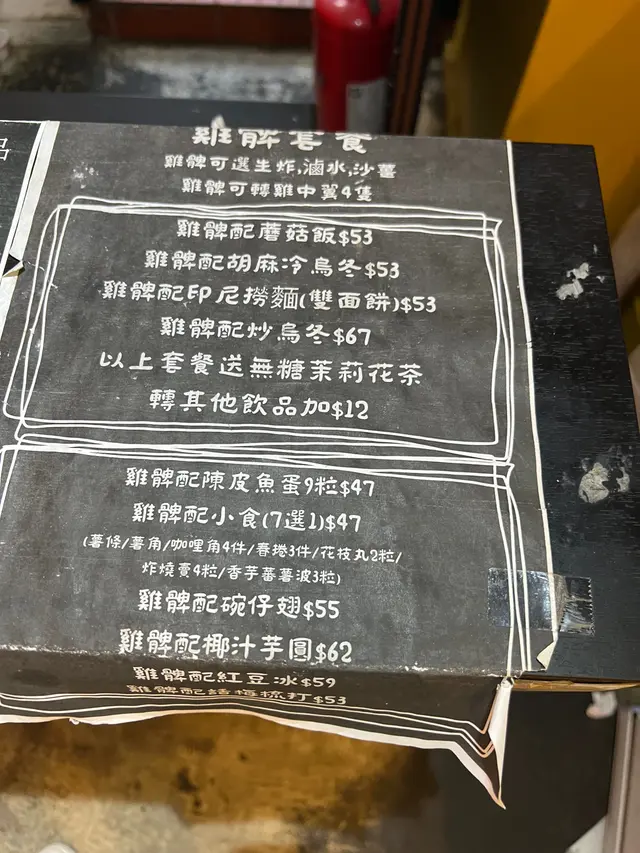 品
雞髀套餐
雞髀可選生炸,滷水,沙薑
雞髀可轉雞中翼4隻
雞髀配蘑菇飯$53
雞髀配胡麻冷烏冬$53
雞髀配印尼撈麵(雙面餅)$53
雞髀配炒烏冬$67
以上套餐送無糖茉莉花茶
轉其他飲品加$12
雞髀配陳皮魚蛋9粒$47
雞髀配小食(7選1)$47
(薯條/薯角/咖哩角4件/春捲3件/花枝丸2粒/
炸燒賣4粒/香芋蕃薯波3粒)
雞髀配碗仔翅$55
雞髀配椰汁芋圓$62
雞髀配紅豆冰$59
雞髀配話梅梳打$53